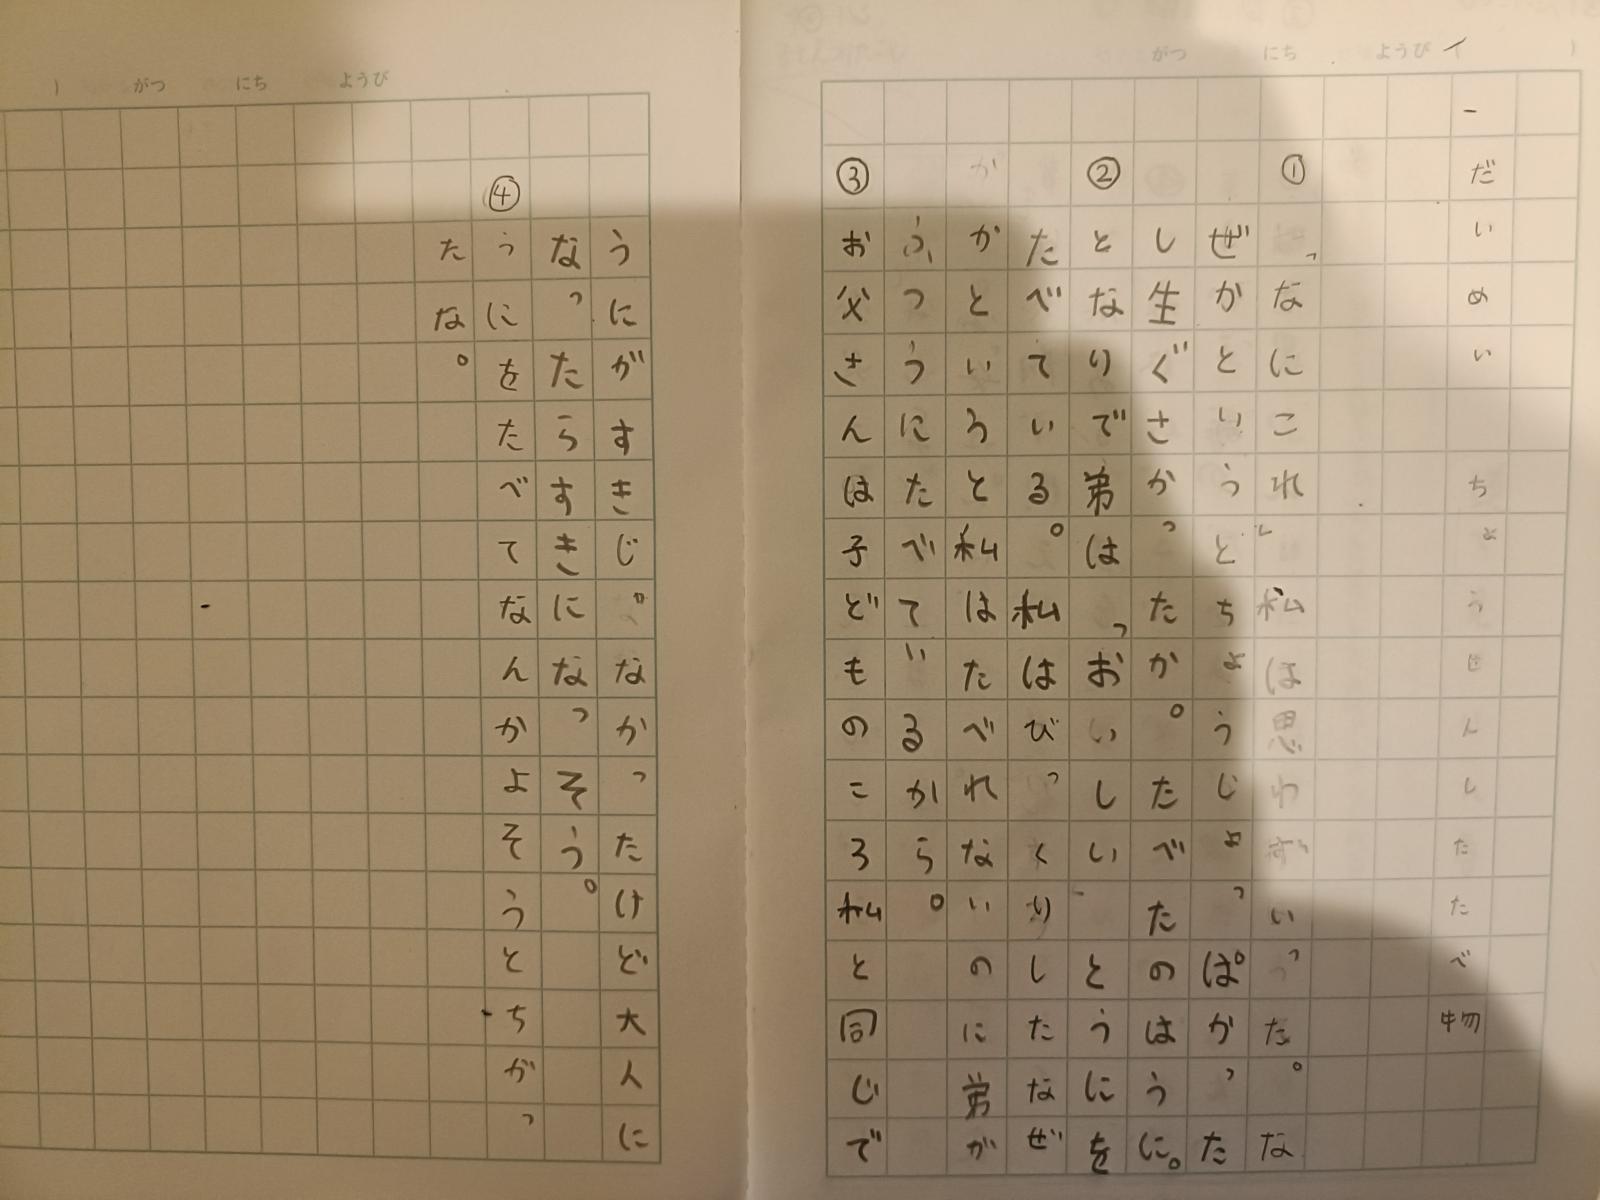 がつ にち ようび
だいめい ちょうせんしたたべ物
①「なにこれ」私は思わずいった。な
ぜかというとちょうじょっぱかった
し生ぐさかったか。たべたのはうに。
②となりで弟は「おいしい」とうにを
たべている。私はびっくりしたなぜ
かといろと私はたべれないのに弟が
ふつうにたべているから。
③お父さんは子どものころ私と同じで
がつ にち ようび
うにがすきじゃなかったけど大人に
なったらすきになっそう。
④うにをたべてなんかよそうとちがっ
たな。